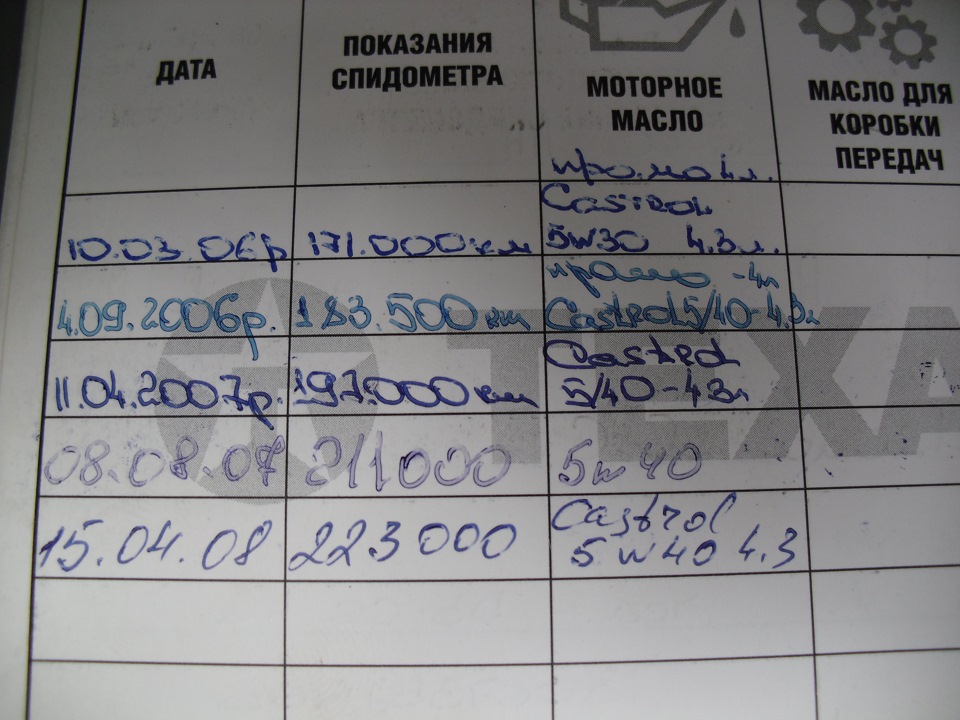 ДАТА
ПОКАЗАНИЯ
СПИДОМЕТРА
МОТОРНОЕ
МАСЛО
МАСЛО ДЛЯ
КОРОБКИ
ПЕРЕДАЧ
4л.
10.03.06р 171.000км
Castrol
5w30 4.3л.
4.09.2006р. 183.500км
промо -4л
Castrol 5/40-4.3л
11.04.2007р. 197.000км
Castrol
5/40-4.3л
08.08.07 211000 5w40
15.04.08 223000
Castrol
5w40 4.3
TEXA